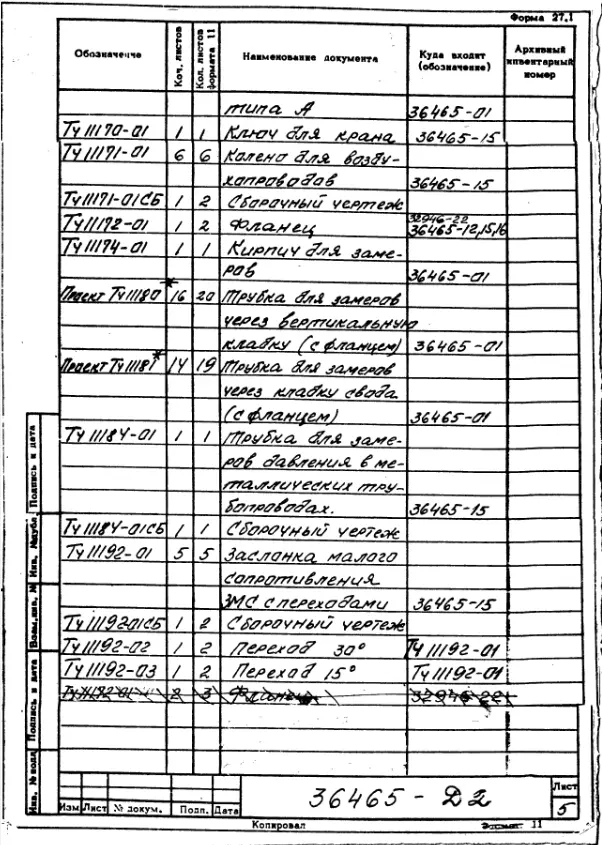 Форма 27.1
Обозначение Кол. листов Кол. листов формата 11 Наименование документа Куда входит (обозначение) Архивный инвентарный номер
типа А 36465-01
Тч 11170-01 1 1 Ключ для крана 36465-15
Тч 11171-01 6 6 Колено для возду-
хопроводов 36465-15
Тч 11171-01СБ 1 2 Сборочный чертеж
Тч 11172-01 1 2 Фланец 32946-22 36465-12,15,16
Тч 11174-01 1 1 Кирпич для заме-
ров 36465-01
Проект Тч 11180* 16 20 Трубка для замеров
через вертикальную
кладку (с фланцем) 36465-01
Проект Тч 11181* 14 19 Трубка для замеров
через кладку свода
(с фланцем) 36465-01
Тч 11184-01 1 1 Трубка для заме-
ров давления в ме-
таллических тру-
бопроводах. 36465-15
Тч 11184-01СБ 1 1 Сборочный чертеж
Тч 11192-01 5 5 Заслонка малого
сопротивления
ЗМС с переходами 36465-15
Тч 11192-01СБ 1 2 Сборочный чертеж
Тч 11192-02 1 2 Переход 30° Тч 11192-01
Тч 11192-03 1 2 Переход 15° Тч 11192-01
2 3 Фланец 32946-22
Инв. № подл. Подпись и дата Взам. инв. № Инв. № дубл. Подпись и дата
36465-Д2
Лист
5
Изм Лист № докум. Подп. Дата
Копировал 11